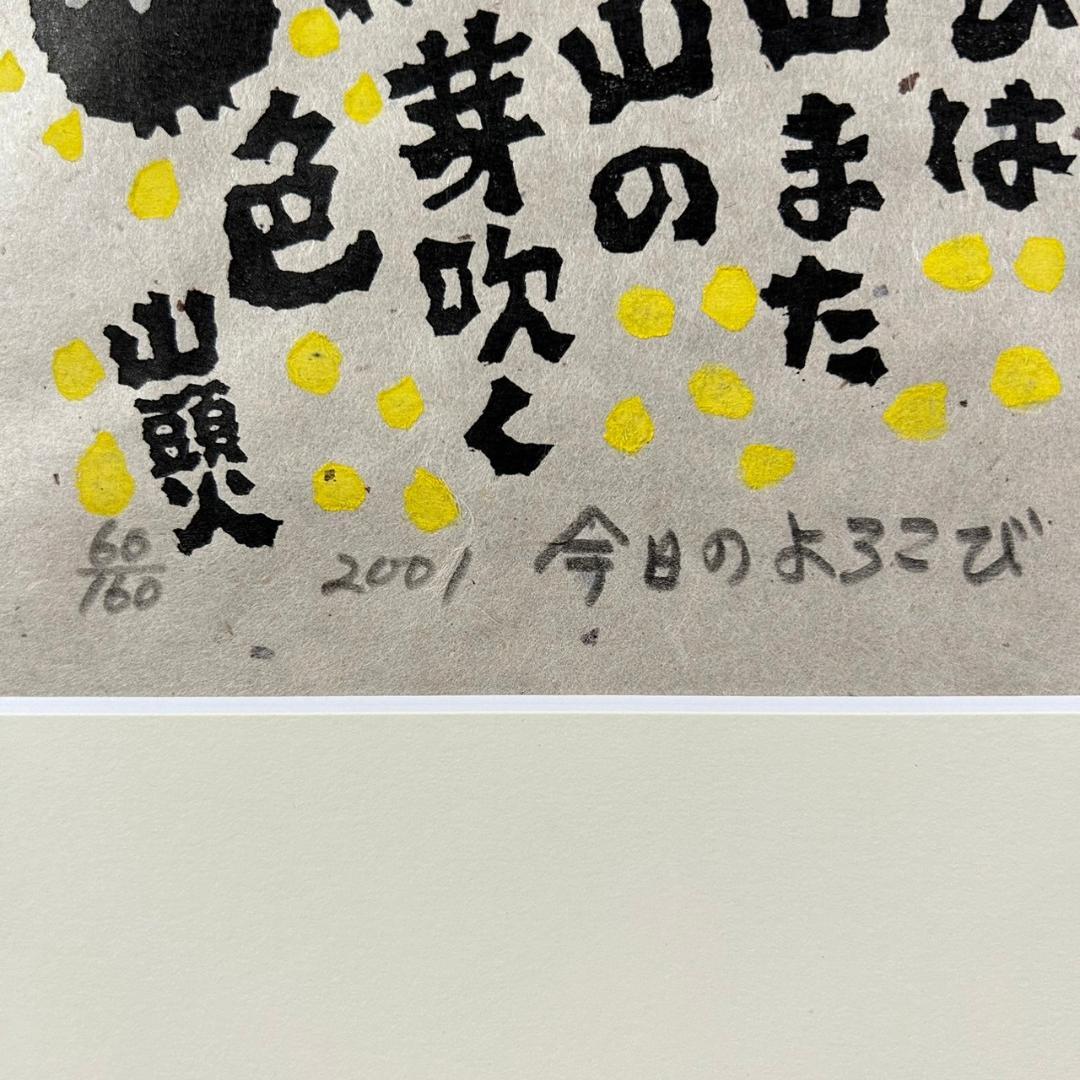 びは
山また
山の
芽吹く
色
山頭火
60/160 2001 今日のよろこび